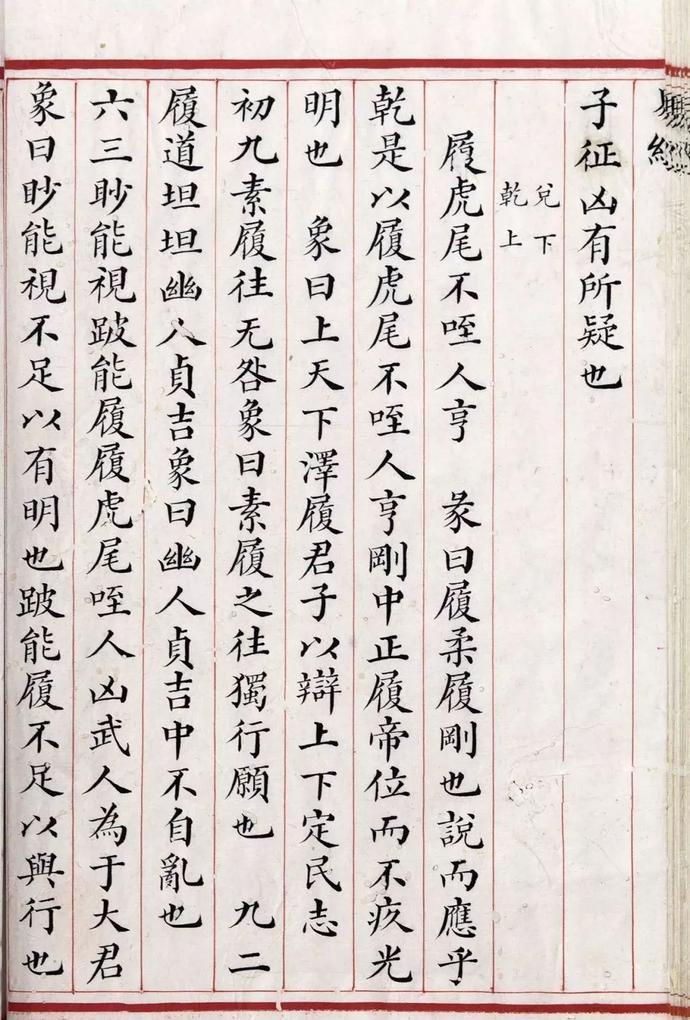 子征凶有所疑也
兌下
乾上
履虎尾不咥人亨 彖曰履柔履剛也說而應乎
乾是以履虎尾不咥人亨剛中正履帝位而不疚光
明也 象曰上天下澤履君子以辯上下定民志
初九素履往无咎象曰素履之往獨行願也 九二
履道坦坦幽人貞吉象曰幽人貞吉中不自亂也
六三眇能視跛能履履虎尾咥人凶武人為于大君
象曰眇能視不足以有明也跛能履不足以與行也